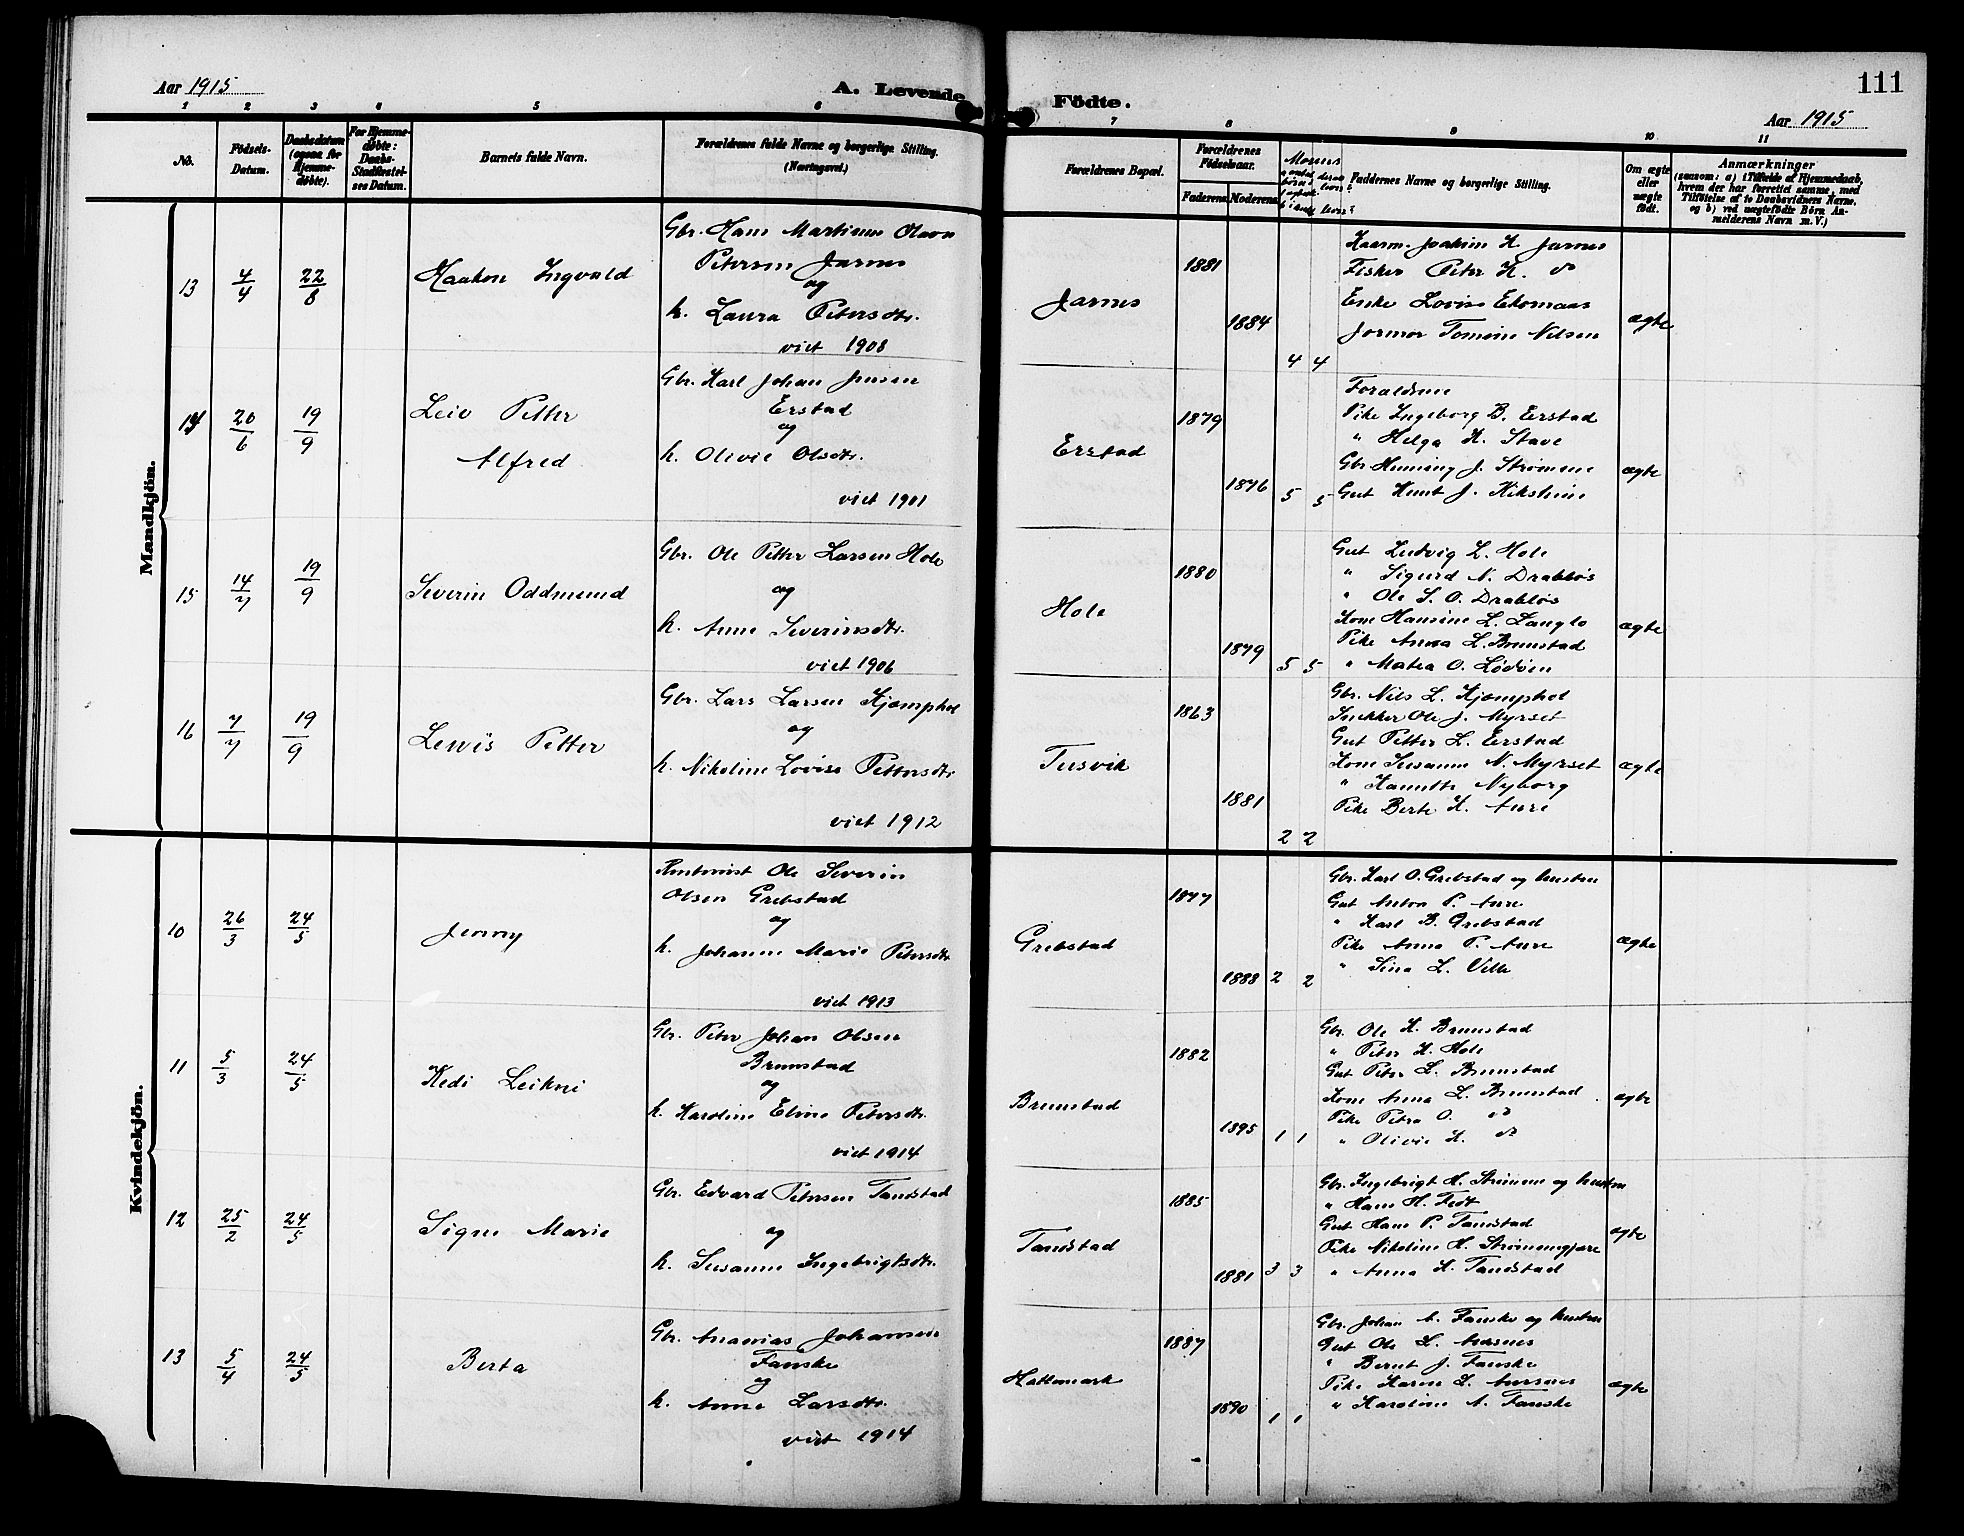 Aar 1915
A. Levende
Födte.
111
Aar 1915
1 2 3 4 5 6 7 8 9 10 11
No.
Födsels-
Datum.
Daabsdatum
(ogsaa for
Hjemme-
døbte).
For Hjemme-
døbte:
Daabs-
Stadfæstel-
ses Datum.
Barnets fulde Navn.
Forældrenes fulde Navne og borgerlige Stilling.
(Næringsvei.)
Forældrenes Bopæl.
Forældrenes
Födselsaar.
Faderens Moderens
Faddernes Navne og borgerlige Stilling.
Om ægte
eller
uægte
født.
Anmærkninger
(saasom: a) i Tilfælde af Hjemmedaab,
hvem der har forrettet samme, med
Tilföielse af to Daabsvidners Navne,
og b) ved uægtefödte Börn An-
melderens Navn m. V.)
Mandkjön.
13
4/4
22/8
Haakon Ingvald
Gbr. Hans Martinus Olaus
Petersen Jarnes
og
h. Laura Petersdtr.
viet 1908
Jarnes
1881
1884
4 4
Haarm. Joakim K. Jarnes
Fisker Peter K. do
Enke Lovise Ekornaas
Jormor Tomine Nilsen
ægte
14
20/6
19/9
Leiv Petter
Alfred
Gbr. Karl Johan Jensen
Erstad
og
h. Olivie Olsdtr.
viet 1901
Erstad
1879
1876
5 5
Foraldrene
Pike Ingeborg B. Erstad
" Helga K. Stave
Gbr Henning J. Strømme
Gut Knut J. Kilsheim
ægte
15
14/7
19/9
Severin Oddmund
Gbr. Ole Petter Larsen Hole
og
h. Anne Severinsdtr.
viet 1906
Hole
1880
1879
5 5
Gut Ludvig L. Hole
" Sigurd N. Drabløs
" Ole S. O. Drabløs
Kone Hansine L. Langlo
Pike Anna L. Brunstad
" Matea O. Lødøen
ægte
16
7/7
19/9
Lewis Petter
Gbr. Lars Larsen Kjæmphol
og
h. Nikoline Lovise Pettersdtr
viet 1912
Tusvik
1863
1881
2 2
Gbr. Nils L. Kjæmphol
Snekker Ole J. Myrset
Gut Petter L. Erstad
Kone Susanne N. Myrset
" Hanette Nyborg
Pike Berte K. Aure
ægte
Kvindekjön.
10
26/3
24/5
Jenny
Ole Severin
Olsen Grebstad
og
h. Johanne Marie Petersdtr
viet 1913
Grebstad
1877
1888
2 2
Gbr. Karl O. Grebstad og hustru
Gut Anton P. Aure
" Karl B. Grebstad
Pike Anna P. Aure
" Sina L. Velle
ægte
11
5/3
24/5
Kedi Leikni
Gbr. Peter Johan Olsen
Brunstad
og
h. Karoline Eline Petersdtr.
viet 1914
Brunstad
1882
1895
1 1
Gbr. Ole K. Brunstad
" Peter K. Hole
Gut Peter L. Brunstad
Kone Anna L. Brunstad
Pike Petra O. do
" Olivie K. do
ægte
12
25/2
24/5
Signe Marie
Gbr. Edvard Petersen Tandstad
og
h. Susanne Ingebrigtsdtr.
Tandstad
1885
1881
3 3
Gbr. Ingebrigt H. Strømme og hustru
" Hans H. Fedt
Gut Hans P. Tandstad
Pike Nikoline H. Strømmegjære
" Anna K. Tandstad
ægte
13
5/4
24/5
Berta
Gbr. Ananias Johansen
Fauske
og
h. Anne Larsdtr.
viet 1914
Hattemark
1887
1890
1 1
Gbr. Johan A. Fauske og hustru
Gut Ole L. Aursnes
" Bernt J. Fauske
Pike Karen L. Aursnes
" Karoline A. Fauske
ægte